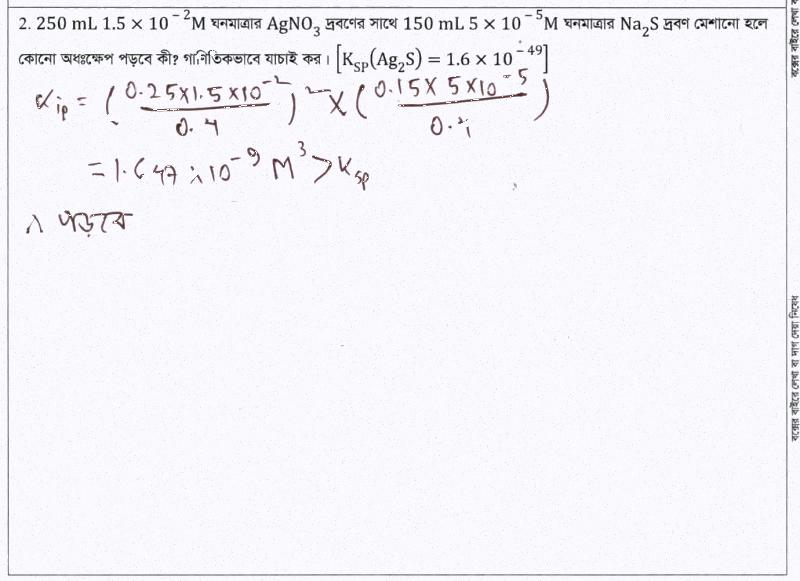 2. 250 mL 1.5 × 10⁻²M ঘনমাত্রার AgNO₃ দ্রবণের সাথে 150 mL 5 × 10⁻⁵M ঘনমাত্রার Na₂S দ্রবণ মেশানো হলে
কোনো অধঃক্ষেপ পড়বে কী? গাণিতিকভাবে যাচাই কর। [K_SP(Ag₂S) = 1.6 × 10⁻⁴⁹]
K_ip = (0.25×1.5×10⁻²/0.4)² × (0.15×5×10⁻⁵/0.4)
= 1.647×10⁻⁹ M³ > K_sp
∴ পড়বে
বক্সের বাইরে লেখা বা দাগ দেয়া নিষেধ
বক্সের বাইরে লেখা ব